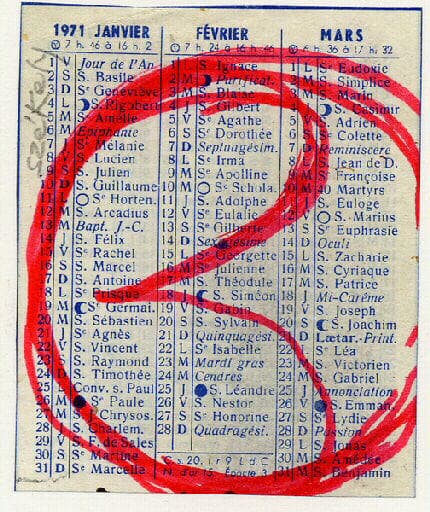 1971 JANVIER
7 h. 46 à 16 h. 2
1 V Jour de l'An
2 S S. Basile
3 D Sᵉ Geneviève
4 L S. Rigobert
5 M Sᵉ Amélie
6 M Epiphanie
7 J Sᵉ Mélanie
8 V S. Lucien
9 S S. Julien
10 D S. Guillaume
11 L Sᵉ Horten.
12 M S. Arcadius
13 M Bapt. J.-C.
14 J S. Félix
15 V Sᵉ Rachel
16 S S. Marcel
17 D S. Antoine
18 L Sᵉ Prisque
19 M Sᵉ Germai.
20 M S. Sébastien
21 J Sᵉ Agnès
22 V S. Vincent
23 S S. Raymond
24 D S. Timothée
25 L Conv. s. Paul
26 M Sᵉ Paule
27 M S. J Chrysos.
28 J S. Charlem.
29 V S. F. de Sales
30 S Sᵉ Martine
31 D Sᵉ Marcelle
FÉVRIER
7 h. 24 à 16 h. 46
1 L S. Ignace
2 M Purificat.
3 M S. Blaise
4 J S. Gilbert
5 V Sᵉ Agathe
6 S Sᵉ Dorothée
7 D Septuagésim.
8 L Sᵉ Irma
9 M Sᵉ Apolline
10 M Sᵉ Schola.
11 J S. Adolphe
12 V Sᵉ Eulalie
13 S Sᵉ Gilberte
14 D Sexagésime
15 L Sᵉ Georgette
16 M Sᵉ Julienne
17 M S. Théodule
18 J S. Siméon
19 V S. Gabin
20 S S. Sylvain
21 D Quinquagést.
22 L Sᵉ Isabelle
23 M Mardi gras
24 M Cendres
25 J S. Léandre
26 V S. Nestor
27 S Sᵉ Honorine
28 D Quadragési.
C. s. 20, l. r 9 L d. C
N. d'or 15, Epacte 3
MARS
6 h. 36 à 17 h. 32
1 L Sᵉ Eudoxie
2 M S. Simplice
3 M S. Marin
4 J S. Casimir
5 V S. Adrien
6 S Sᵉ Colette
7 D Reminiscere
8 L S. Jean de D.
9 M Sᵉ Françoise
10 M 40 Martyrs
11 J S. Euloge
12 V S. Marius
13 S Sᵉ Euphrasie
14 D Oculi
15 L S. Zacharie
16 M S. Cyriaque
17 M S. Patrice
18 J Mi-Carême
19 V S. Joseph
20 S S. Joachim
21 D Lætar.-Print.
22 L Sᵉ Léa
23 M S. Victorien
24 M S. Gabriel
25 J Annonciation
26 V S. Emman.
27 S Sᵉ Lydie
28 D Passion
29 L S. Jonas
30 M S. Amédée
31 M S. Benjamin